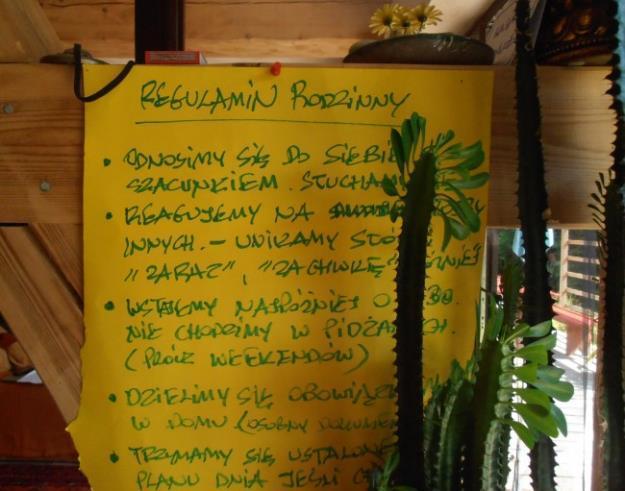 REGULAMIN RODZINNY
• ODNOSIMY SIĘ DO SIEBIE
SZACUNKIEM. SŁUCHAMY
• REAGUJEMY NA
INNYCH. – UNIKAMY
"ZARAZ", "ZA CHWILĘ"
• WSTAJEMY NAJPÓŹNIEJ O
NIE CHODZIMY W PIDŻAMACH.
(PRÓCZ WEEKENDÓW)
• DZIELIMY SIĘ
W DOMU (OSOBNY DOKUMENT
• TRZYMAMY SIĘ
PLANU DNIA JEŚLI